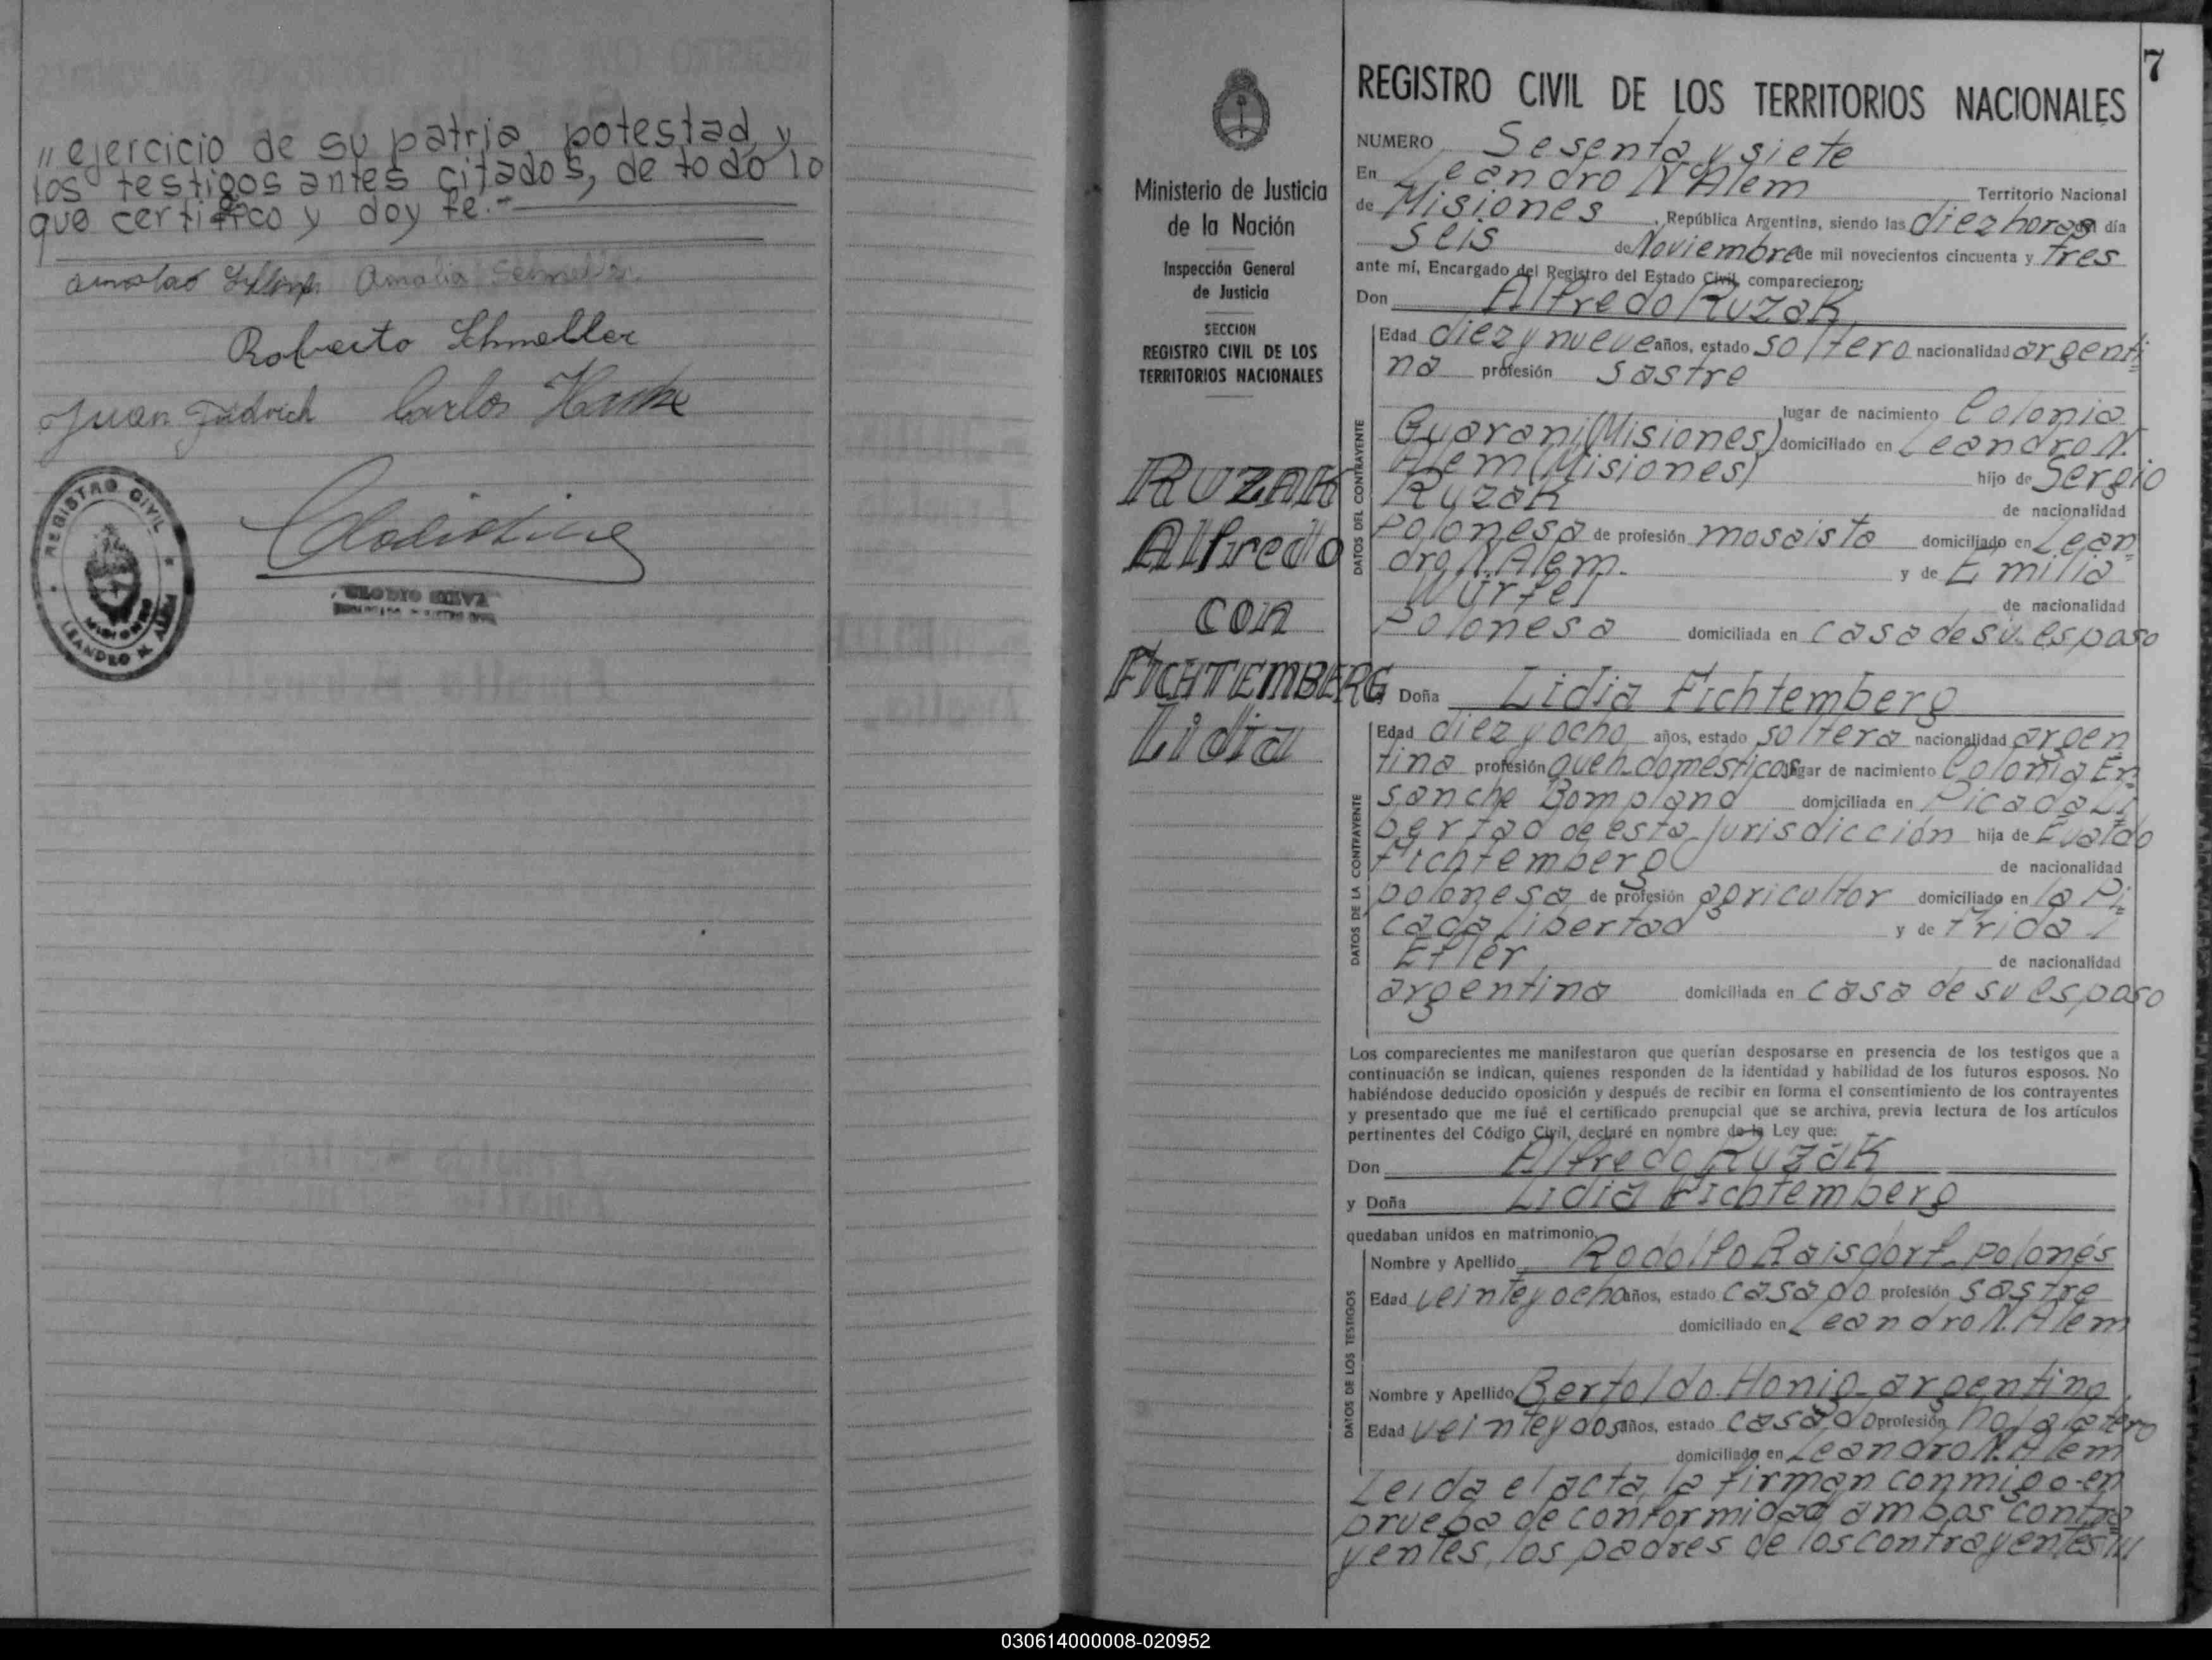 " ejercicio de su patria potestad y
los testigos antes citados, de todo lo
que certifico y doy fe.-
Amalia Schmeller
Roberto Schmeller
Juan Carlos
REGISTRO CIVIL
MISIONES
LEANDRO N. ALEM
7
Ministerio de Justicia
de la Nación
Inspección General
de Justicia
SECCION
REGISTRO CIVIL DE LOS
TERRITORIOS NACIONALES
RUZAK
Alfredo
con
FICHTEMBERG
Lidia
REGISTRO CIVIL DE LOS TERRITORIOS NACIONALES
NUMERO Sesenta y siete
En Leandro N. Alem Territorio Nacional
de Misiones, República Argentina, siendo las diez horas del día
seis de Noviembre de mil novecientos cincuenta y tres
ante mí, Encargado del Registro del Estado Civil, comparecieron:
Don Alfredo Ruzak
DATOS DEL CONTRAYENTE
Edad diez y nueve años, estado soltero nacionalidad argenti=
na profesión sastre
lugar de nacimiento Colonia
Guaraní (Misiones) domiciliado en Leandro N.
Alem (Misiones) hijo de Sergio
Ruzak de nacionalidad
polonesa de profesión mosaista domiciliado en Lean=
dro N. Alem. y de Emilia
Würfel de nacionalidad
polonesa domiciliada en casa de su esposo
Doña Lidia Fichtemberg
DATOS DE LA CONTRAYENTE
Edad diez y ocho años, estado soltera nacionalidad argen=
tina profesión queh. domésticos lugar de nacimiento Colonia En=
sanche Bompland domiciliada en Picada Li=
bertad de esta jurisdicción hija de Evaldo
Fichtemberg de nacionalidad
polonesa de profesión agricultor domiciliado en la Pi=
cada Libertad y de Frida
Efler de nacionalidad
argentina domiciliada en casa de su esposo
Los comparecientes me manifestaron que querían desposarse en presencia de los testigos que a
continuación se indican, quienes responden de la identidad y habilidad de los futuros esposos. No
habiéndose deducido oposición y después de recibir en forma el consentimiento de los contrayentes
y presentado que me fué el certificado prenupcial que se archiva, previa lectura de los artículos
pertinentes del Código Civil, declaré en nombre de la Ley que:
Don Alfredo Ruzak
y Doña Lidia Fichtemberg
quedaban unidos en matrimonio.
DATOS DE LOS TESTIGOS
Nombre y Apellido Rodolfo Raisdorf - polonés
Edad veinte y ocho años, estado casado profesión sastre
domiciliado en Leandro N. Alem
Nombre y Apellido Bertoldo Honig - argentino
Edad veinte y dos años, estado casado profesión hojalatero
domiciliado en Leandro N. Alem
Leída el acta, la firman conmigo en
prueba de conformidad ambos contra=
yentes, los padres de los contrayentes ///
030614000008-020952